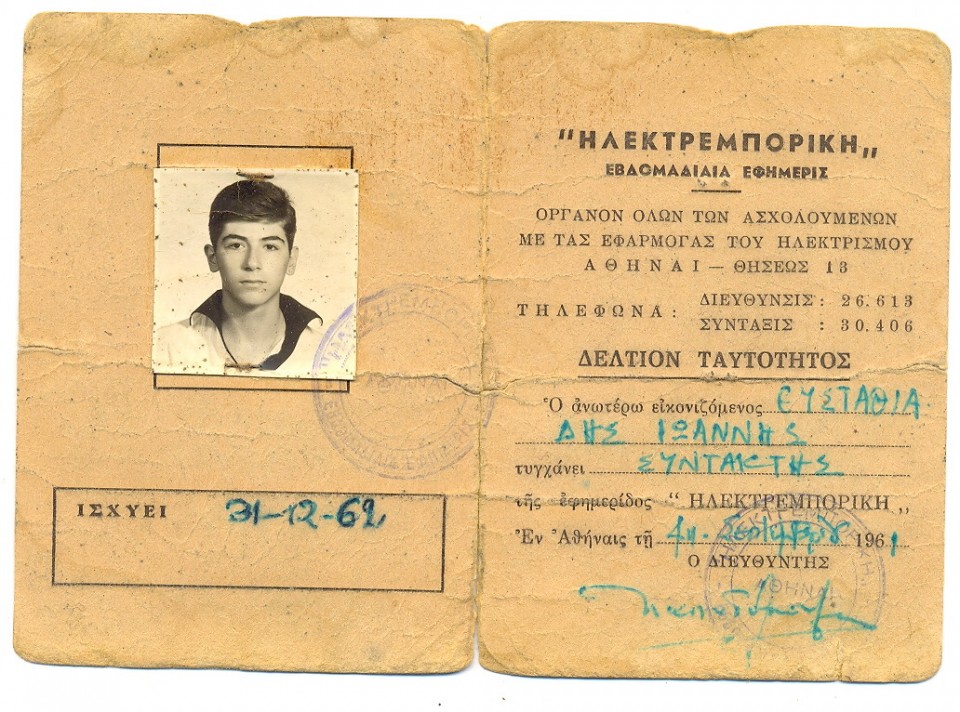 "ΗΛΕΚΤΡΕΜΠΟΡΙΚΗ„
ΕΒΔΟΜΑΔΙΑΙΑ ΕΦΗΜΕΡΙΣ
ΟΡΓΑΝΟΝ ΟΛΩΝ ΤΩΝ ΑΣΧΟΛΟΥΜΕΝΩΝ
ΜΕ ΤΑΣ ΕΦΑΡΜΟΓΑΣ ΤΟΥ ΗΛΕΚΤΡΙΣΜΟΥ
ΑΘΗΝΑΙ — ΘΗΣΕΩΣ 13
ΤΗΛΕΦΩΝΑ: ΔΙΕΥΘΥΝΣΙΣ: 26.613
ΣΥΝΤΑΞΙΣ : 30.406
ΔΕΛΤΙΟΝ ΤΑΥΤΟΤΗΤΟΣ
Ὁ ἀνωτέρω εἰκονιζόμενος ΕΥΣΤΑΘΙΑ
ΔΗΣ ΙΩΑΝΝΗΣ
τυγχάνει ΣΥΝΤΑΚΤΗΣ
τῆς ἐφημερίδος "ΗΛΕΚΤΡΕΜΠΟΡΙΚΗ„
Ἐν Ἀθήναις τῇ 4η Σεπτεμβρίου 1961
Ο ΔΙΕΥΘΥΝΤΗΣ
ΑΘΗΝΑΙ
ΙΣΧΥΕΙ 31-12-62